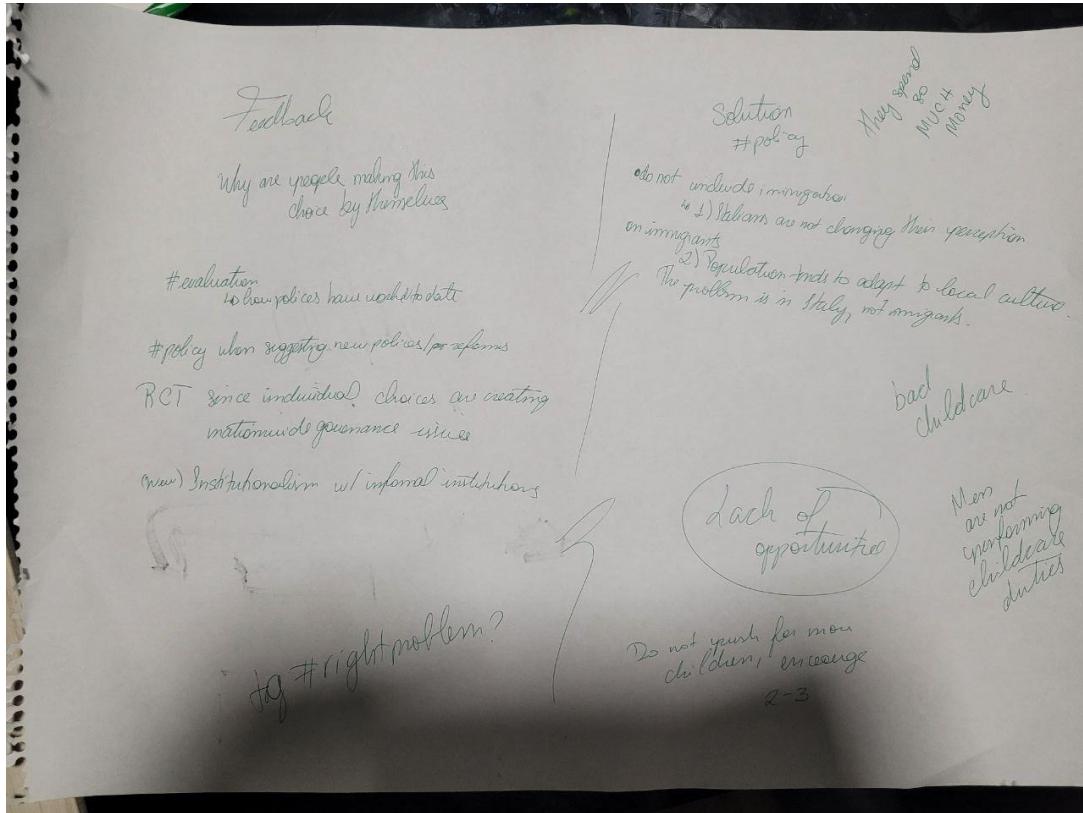 Feedback
Why are people making this
choice by themselves
#evaluation
↳ how polices have worked to date
#policy when suggesting new polices/ reforms
RCT since individual choices are creating
nationwide governance issues
(new) Institutionalism w/ informal institutions
tag #rightproblem?
Solution
#policy
They spend
so
MUCH
Money
• do not include immigration
↳ 1) Italians are not changing their perception
on immigrants
2) Population tends to adapt to local culture.
The problem is in Italy, not immigrants.
bad
childcare
Lack of
opportunities
Men
are not
performing
childcare
duties
Do not push for more
children, encourage
2-3